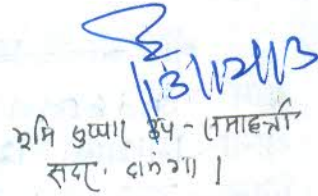 13/12/13
भूमि सुधार उप-समाहर्त्ता
सदर, दरभंगा।